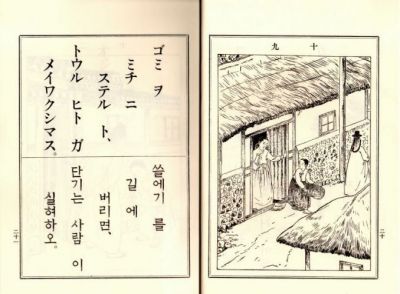 十九
二十
ゴミ ヲ
ミチ ニ
ステル ト、
トウル ヒト ガ
メイワクシマス。
쓸에기 를
길 에
버리면,
단기는 사람 이
실혀하오.
二十一